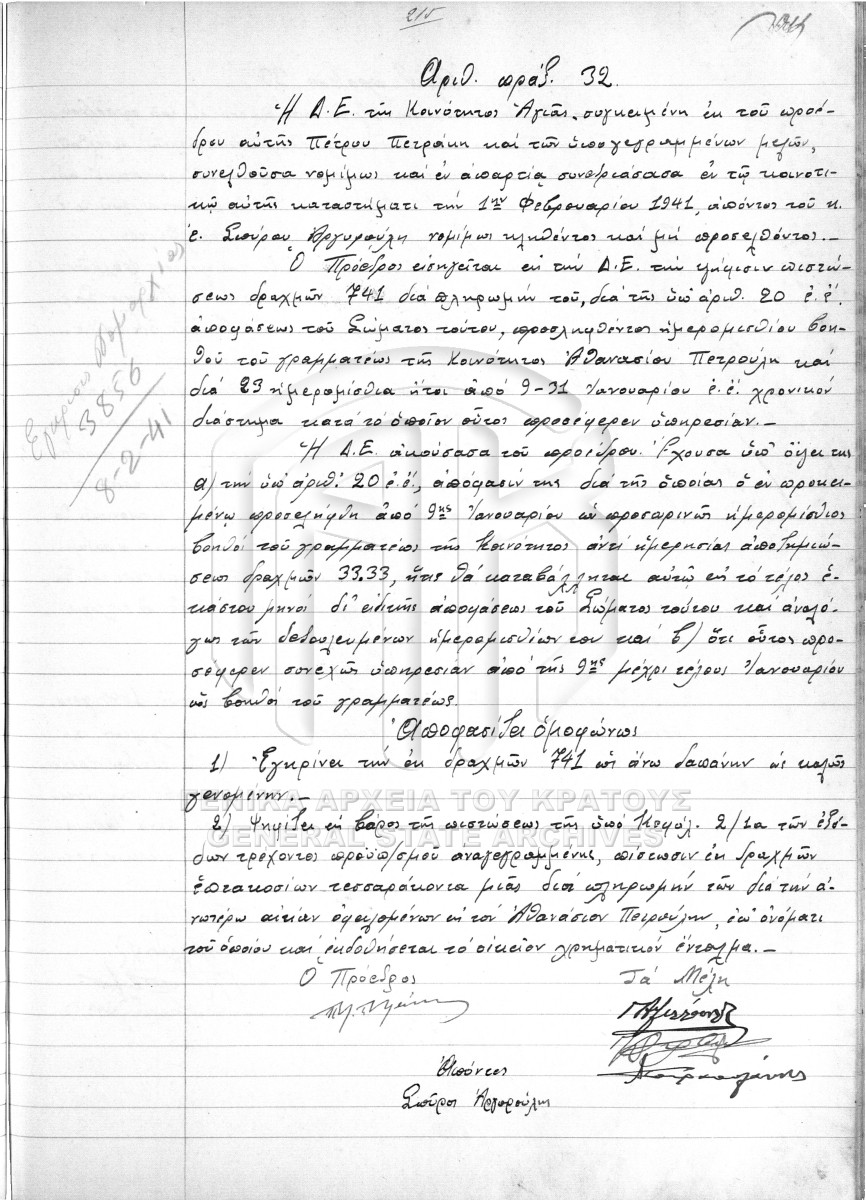 215
Αριθ. πράξ. 32.
Ἡ Δ.Ε. τῆς Κοινότητος Ἁγιᾶς, συγκειμένη ἐκ τοῦ προέ-
δρου αὐτῆς Πέτρου Πετράκη καὶ τῶν ὑπογεγραμμένων μελῶν,
συνελθοῦσα νομίμως καὶ ἐν ἀπαρτίᾳ συνεδριάσασα ἐν τῷ κοινοτι-
κῷ αὐτῆς καταστήματι τὴν 1ην Φεβρουαρίου 1941, ἀπόντος τοῦ κ.
Σπύρου Ἀργυρούλη νομίμως κληθέντος καὶ μὴ προσελθόντος.—
Ὁ Πρόεδρος εἰσηγεῖται εἰς τὴν Δ.Ε. τὴν ψήφισιν πιστώ-
σεως δραχμῶν 741 διὰ πληρωμὴν τοῦ, διὰ τῆς ὑπ' ἀριθ. 20 ἐ.ἔ.
ἀποφάσεως τοῦ Σώματος τούτου, προσληφθέντος ἡμερομισθίου βοη-
θοῦ τοῦ γραμματέως τῆς Κοινότητος Ἀθανασίου Πετρούλη καὶ
διὰ 23 ἡμερομίσθια ἤτοι ἀπὸ 9-31 Ἰανουαρίου ἐ.ἔ. χρονικὸν
διάστημα κατὰ τὸ ὁποῖον οὗτος προσέφερεν ὑπηρεσίαν.—
Ἡ Δ.Ε. ἀκούσασα τοῦ προέδρου. Ἔχουσα ὑπ' ὄψει της
α) τὴν ὑπ' ἀριθ. 20 ἐ.ἔ., ἀπόφασίν της διὰ τῆς ὁποίας ὁ ἐν προκει-
μένῳ προσελήφθη ἀπὸ 9ης Ἰανουαρίου ὡς προσωρινῶς ἡμερομίσθιος
βοηθὸς τοῦ γραμματέως τῆς Κοινότητος ἀντὶ ἡμερησίας ἀποζημιώ-
σεως δραχμῶν 33.33, ἥτις θὰ καταβάλληται αὐτῷ εἰς τὸ τέλος ἑ-
κάστου μηνὸς δι' εἰδικῆς ἀποφάσεως τοῦ Σώματος τούτου καὶ ἀναλό-
γως τῶν δεδουλευμένων ἡμερομισθίων του καὶ β) ὅτι οὗτος προ-
σέφερεν συνεχῶς ὑπηρεσίαν ἀπὸ τῆς 9ης μέχρι τέλους Ἰανουαρίου
ὡς βοηθὸς τοῦ γραμματέως.
Ἀποφασίζει ὁμοφώνως
1) Ἐγκρίνει τὴν ἐκ δραχμῶν 741 ὡς ἄνω δαπάνην ὡς καλῶς
γενομένην.—
2) Ψηφίζει εἰς βάρος τῆς πιστώσεως τῆς ὑπὸ Κεφάλ. 2/1α τῶν ἐξό-
δων τρέχοντος προϋπ/σμοῦ ἀναγεγραμμένης, πίστωσιν ἐκ δραχμῶν
ἑπτακοσίων τεσσαράκοντα μιᾶς διὰ πληρωμὴν τῶν διὰ τὴν ἀ-
νωτέρω αἰτίαν ὀφειλομένων εἰς τὸν Ἀθανάσιον Πετρούλην, ἐπ' ὀνόματι
τοῦ ὁποίου καὶ ἐκδοθήσεται τὸ οἰκεῖον χρηματικὸν ἔνταλμα.—
Ὁ Πρόεδρος
Τὰ Μέλη
Ἀπόντες
Σπῦρος Ἀργυρούλης
Νομαρχίας
3856
8-2-41
ΓΕΝΙΚΑ ΑΡΧΕΙΑ ΤΟΥ ΚΡΑΤΟΥΣ
GENERAL STATE ARCHIVES